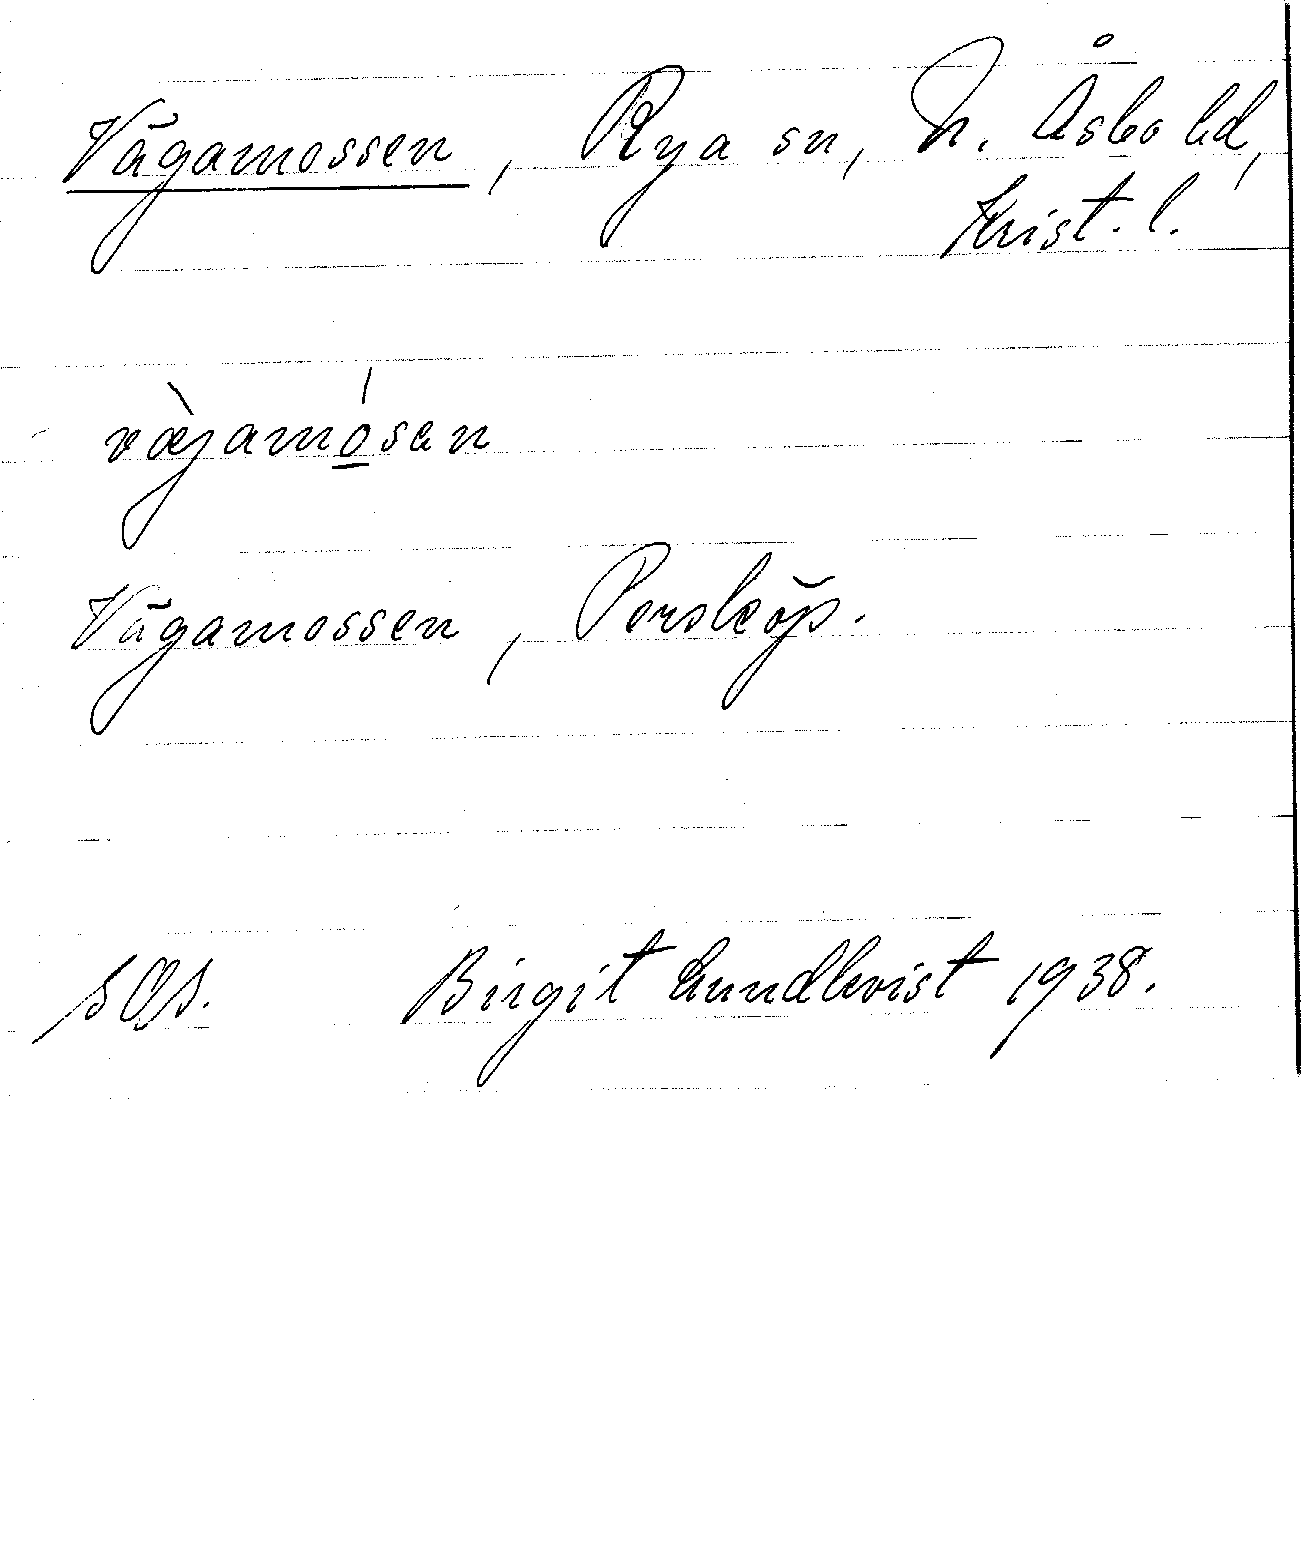 Vägamossen, Rya sn, N. Åsbo hd,
Krist. l.
vàjamósan
Vägamossen, Persköp.
SOA. Birgit Lundkvist 1938.